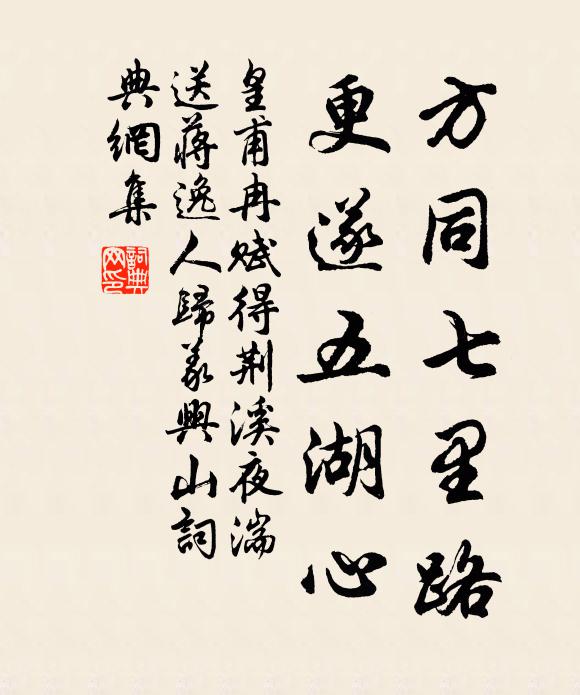 方同七里路
更遂五湖心
皇甫冉賦得荆溪夜湍
送蔣逸人歸義興山詞
典網集
詞典
网印